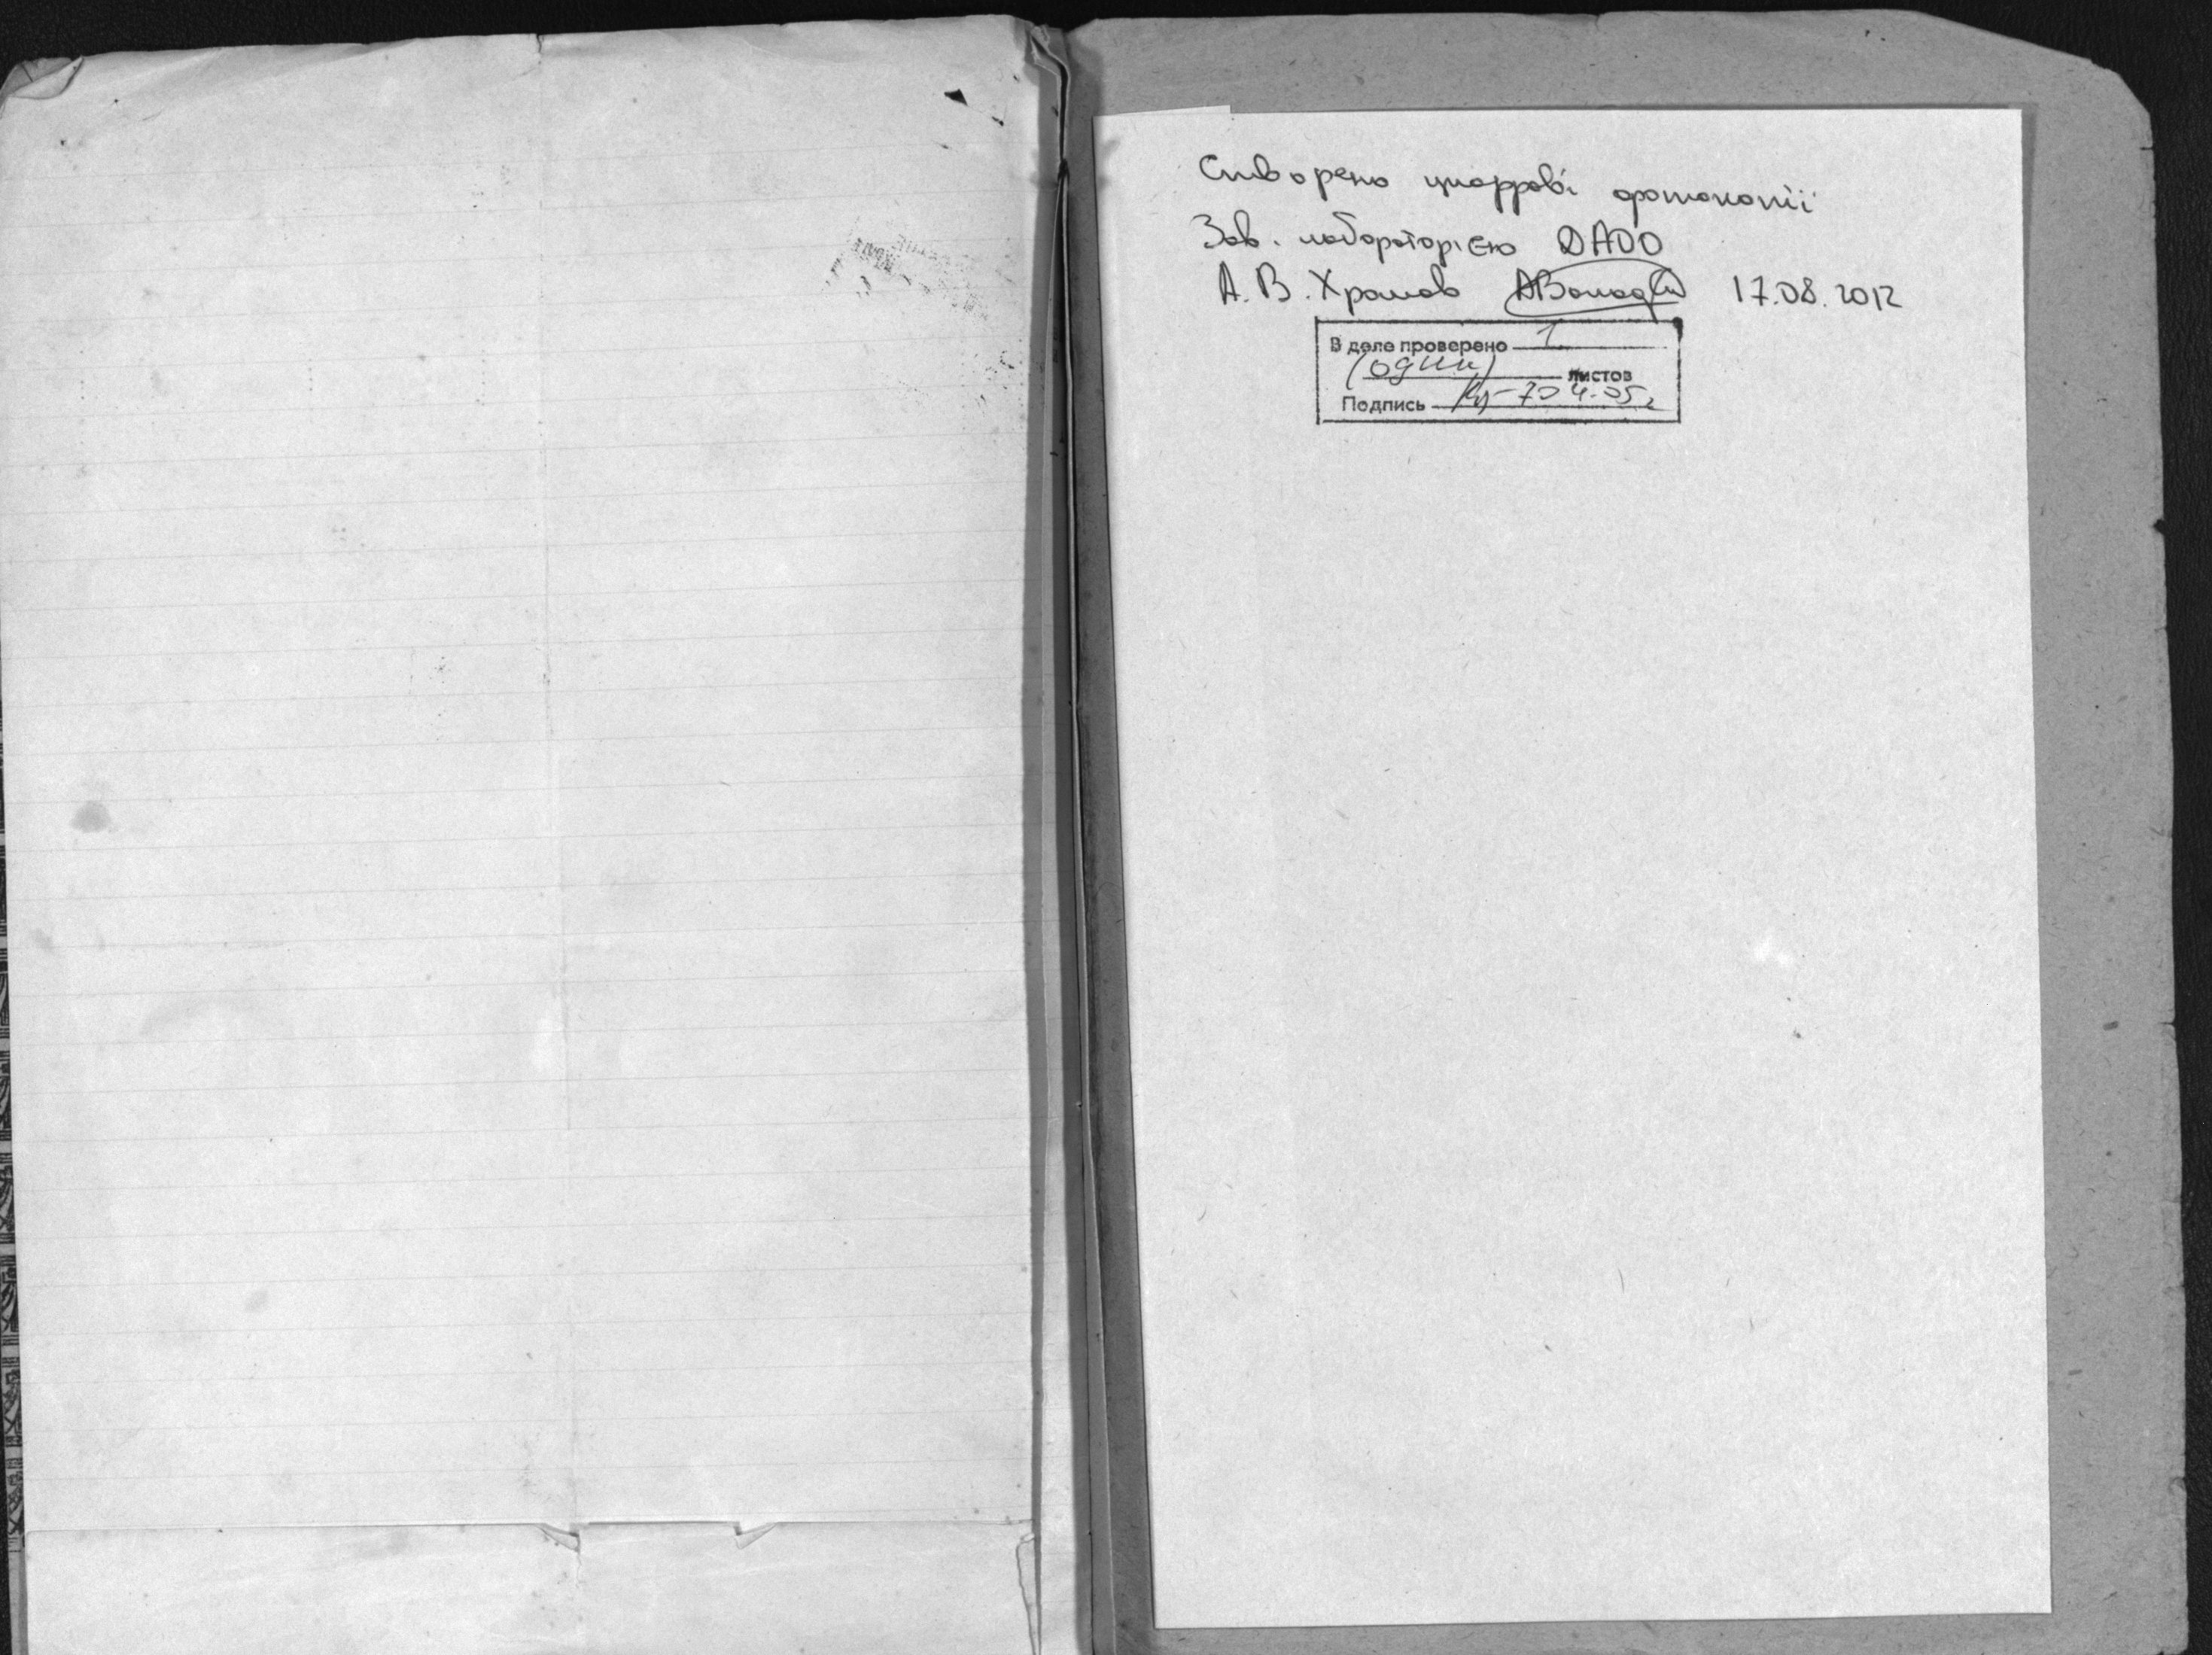 Створено цифрові фотокопії
Зав. лабораторією ДАОО
А.В. Храмов 17.08.2012
В деле проверено 1
(один) листов
Подпись 7.04.05г